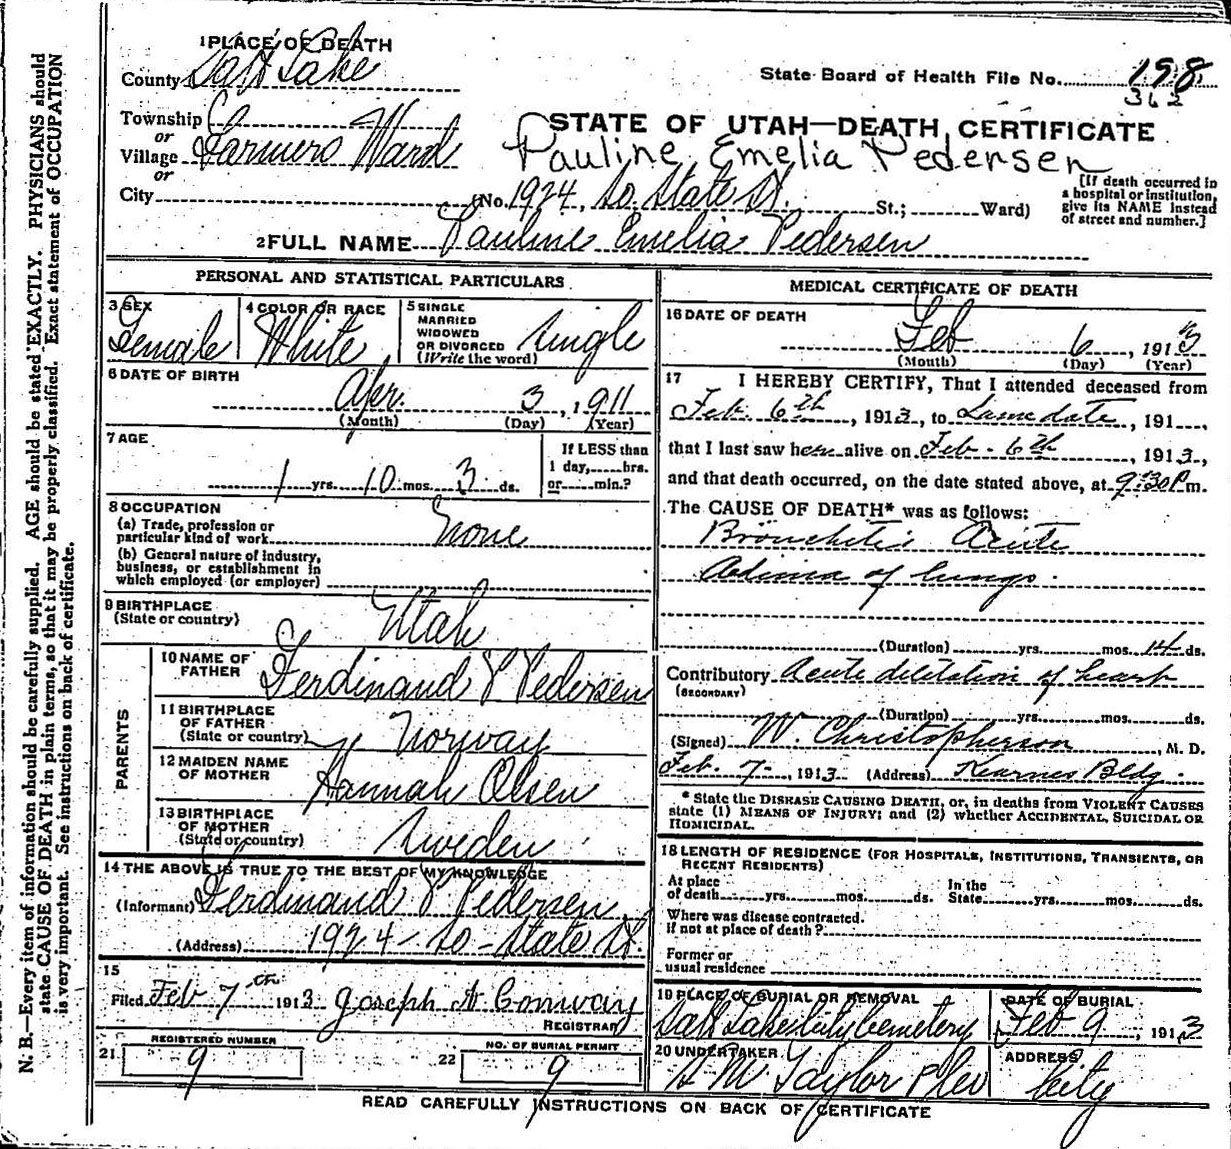 1 PLACE OF DEATH
County Salt Lake
State Board of Health File No. 198
362
Township
or
Village Farmers Ward
or
City
STATE OF UTAH—DEATH CERTIFICATE
Pauline Emelia Pedersen
(No. 1924, So. State St. St.; Ward)
[If death occurred in a hospital or institution, give its NAME instead of street and number.]
2 FULL NAME Pauline Emelia Pedersen
PERSONAL AND STATISTICAL PARTICULARS
3 SEX Female
4 COLOR OR RACE White
5 SINGLE MARRIED WIDOWED OR DIVORCED (Write the word) Single
6 DATE OF BIRTH
Apr. 3, 1911
(Month) (Day) (Year)
7 AGE
1 yrs. 10 mos. 3 ds.
If LESS than 1 day, hrs. or min.?
8 OCCUPATION
(a) Trade, profession or particular kind of work None
(b) General nature of industry, business, or establishment in which employed (or employer)
9 BIRTHPLACE (State or country) Utah
PARENTS
10 NAME OF FATHER Ferdinand P Pedersen
11 BIRTHPLACE OF FATHER (State or country) Norway
12 MAIDEN NAME OF MOTHER Hannah Olsen
13 BIRTHPLACE OF MOTHER (State or country) Sweden
14 THE ABOVE IS TRUE TO THE BEST OF MY KNOWLEDGE
(Informant) Ferdinand P Pedersen
(Address) 1924 - So - State St.
15
Filed Feb 7th 1913 Joseph A Conway
REGISTRAR
21 REGISTERED NUMBER 9
22 NO. OF BURIAL PERMIT 9
MEDICAL CERTIFICATE OF DEATH
16 DATE OF DEATH
Feb 6, 1913
(Month) (Day) (Year)
17 I HEREBY CERTIFY, That I attended deceased from
Feb. 6th, 1913, to Same date, 191
that I last saw her alive on Feb. 6th, 1913,
and that death occurred, on the date stated above, at 9:30 P m.
The CAUSE OF DEATH* was as follows:
Bronchitis Acute
Adima of lungs.
(Duration) yrs. mos. 14 ds.
Contributory Acute diletation of heart
(SECONDARY)
(Duration) yrs. mos. ds.
(Signed) W. Christopherson, M. D.
Feb. 7, 1913 (Address) Kearnes Bldg.
* State the DISEASE CAUSING DEATH, or, in deaths from VIOLENT CAUSES
state (1) MEANS OF INJURY; and (2) whether ACCIDENTAL, SUICIDAL OR
HOMICIDAL.
18 LENGTH OF RESIDENCE (FOR HOSPITALS, INSTITUTIONS, TRANSIENTS, OR
RECENT RESIDENTS)
At place of death yrs. mos. ds. In the State yrs. mos. ds.
Where was disease contracted.
If not at place of death?
Former or
usual residence
19 PLACE OF BURIAL OR REMOVAL
Salt Lake City Cemetery
DATE OF BURIAL
Feb 9, 1913
20 UNDERTAKER
S M Taylor
ADDRESS
City
READ CAREFULLY INSTRUCTIONS ON BACK OF CERTIFICATE
N. B.—Every item of information should be carefully supplied. AGE should be stated EXACTLY. PHYSICIANS should
state CAUSE OF DEATH in plain terms, so that it may be properly classified. Exact statement of OCCUPATION
is very important. See instructions on back of certificate.